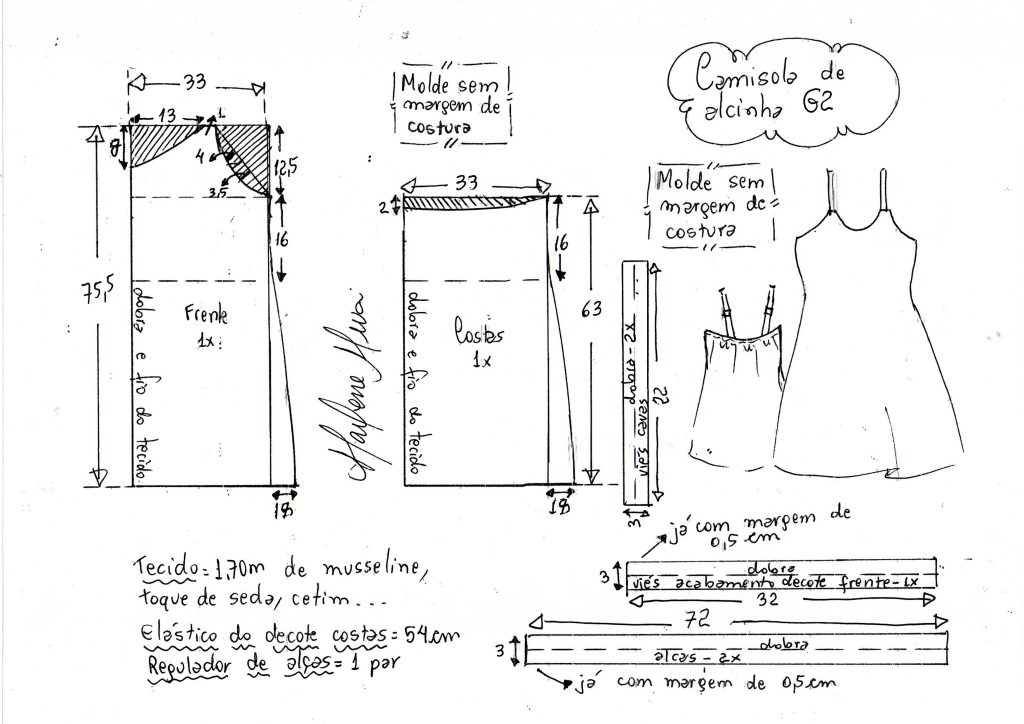 Camisola de
alcinha G2
33
13
1
8
4
3,5
12,5
16
75,5
Frente
1x
dobra e fio do tecido
18
Molde sem
margem de
costura
33
2
16
63
Costas
1x
dobra e fio do tecido
18
Marlene Mukai
Molde sem
margem de
costura
dobra - 2x
viés cavas
22
3
já com margem de
0,5 cm
3
dobra
viés acabamento decote frente - 1x
32
72
3
dobra
alças - 2x
já com margem de 0,5 cm
Tecido = 1,70m de musseline,
toque de seda, cetim...
Elástico do decote costas = 54 cm
Regulador de alças = 1 par